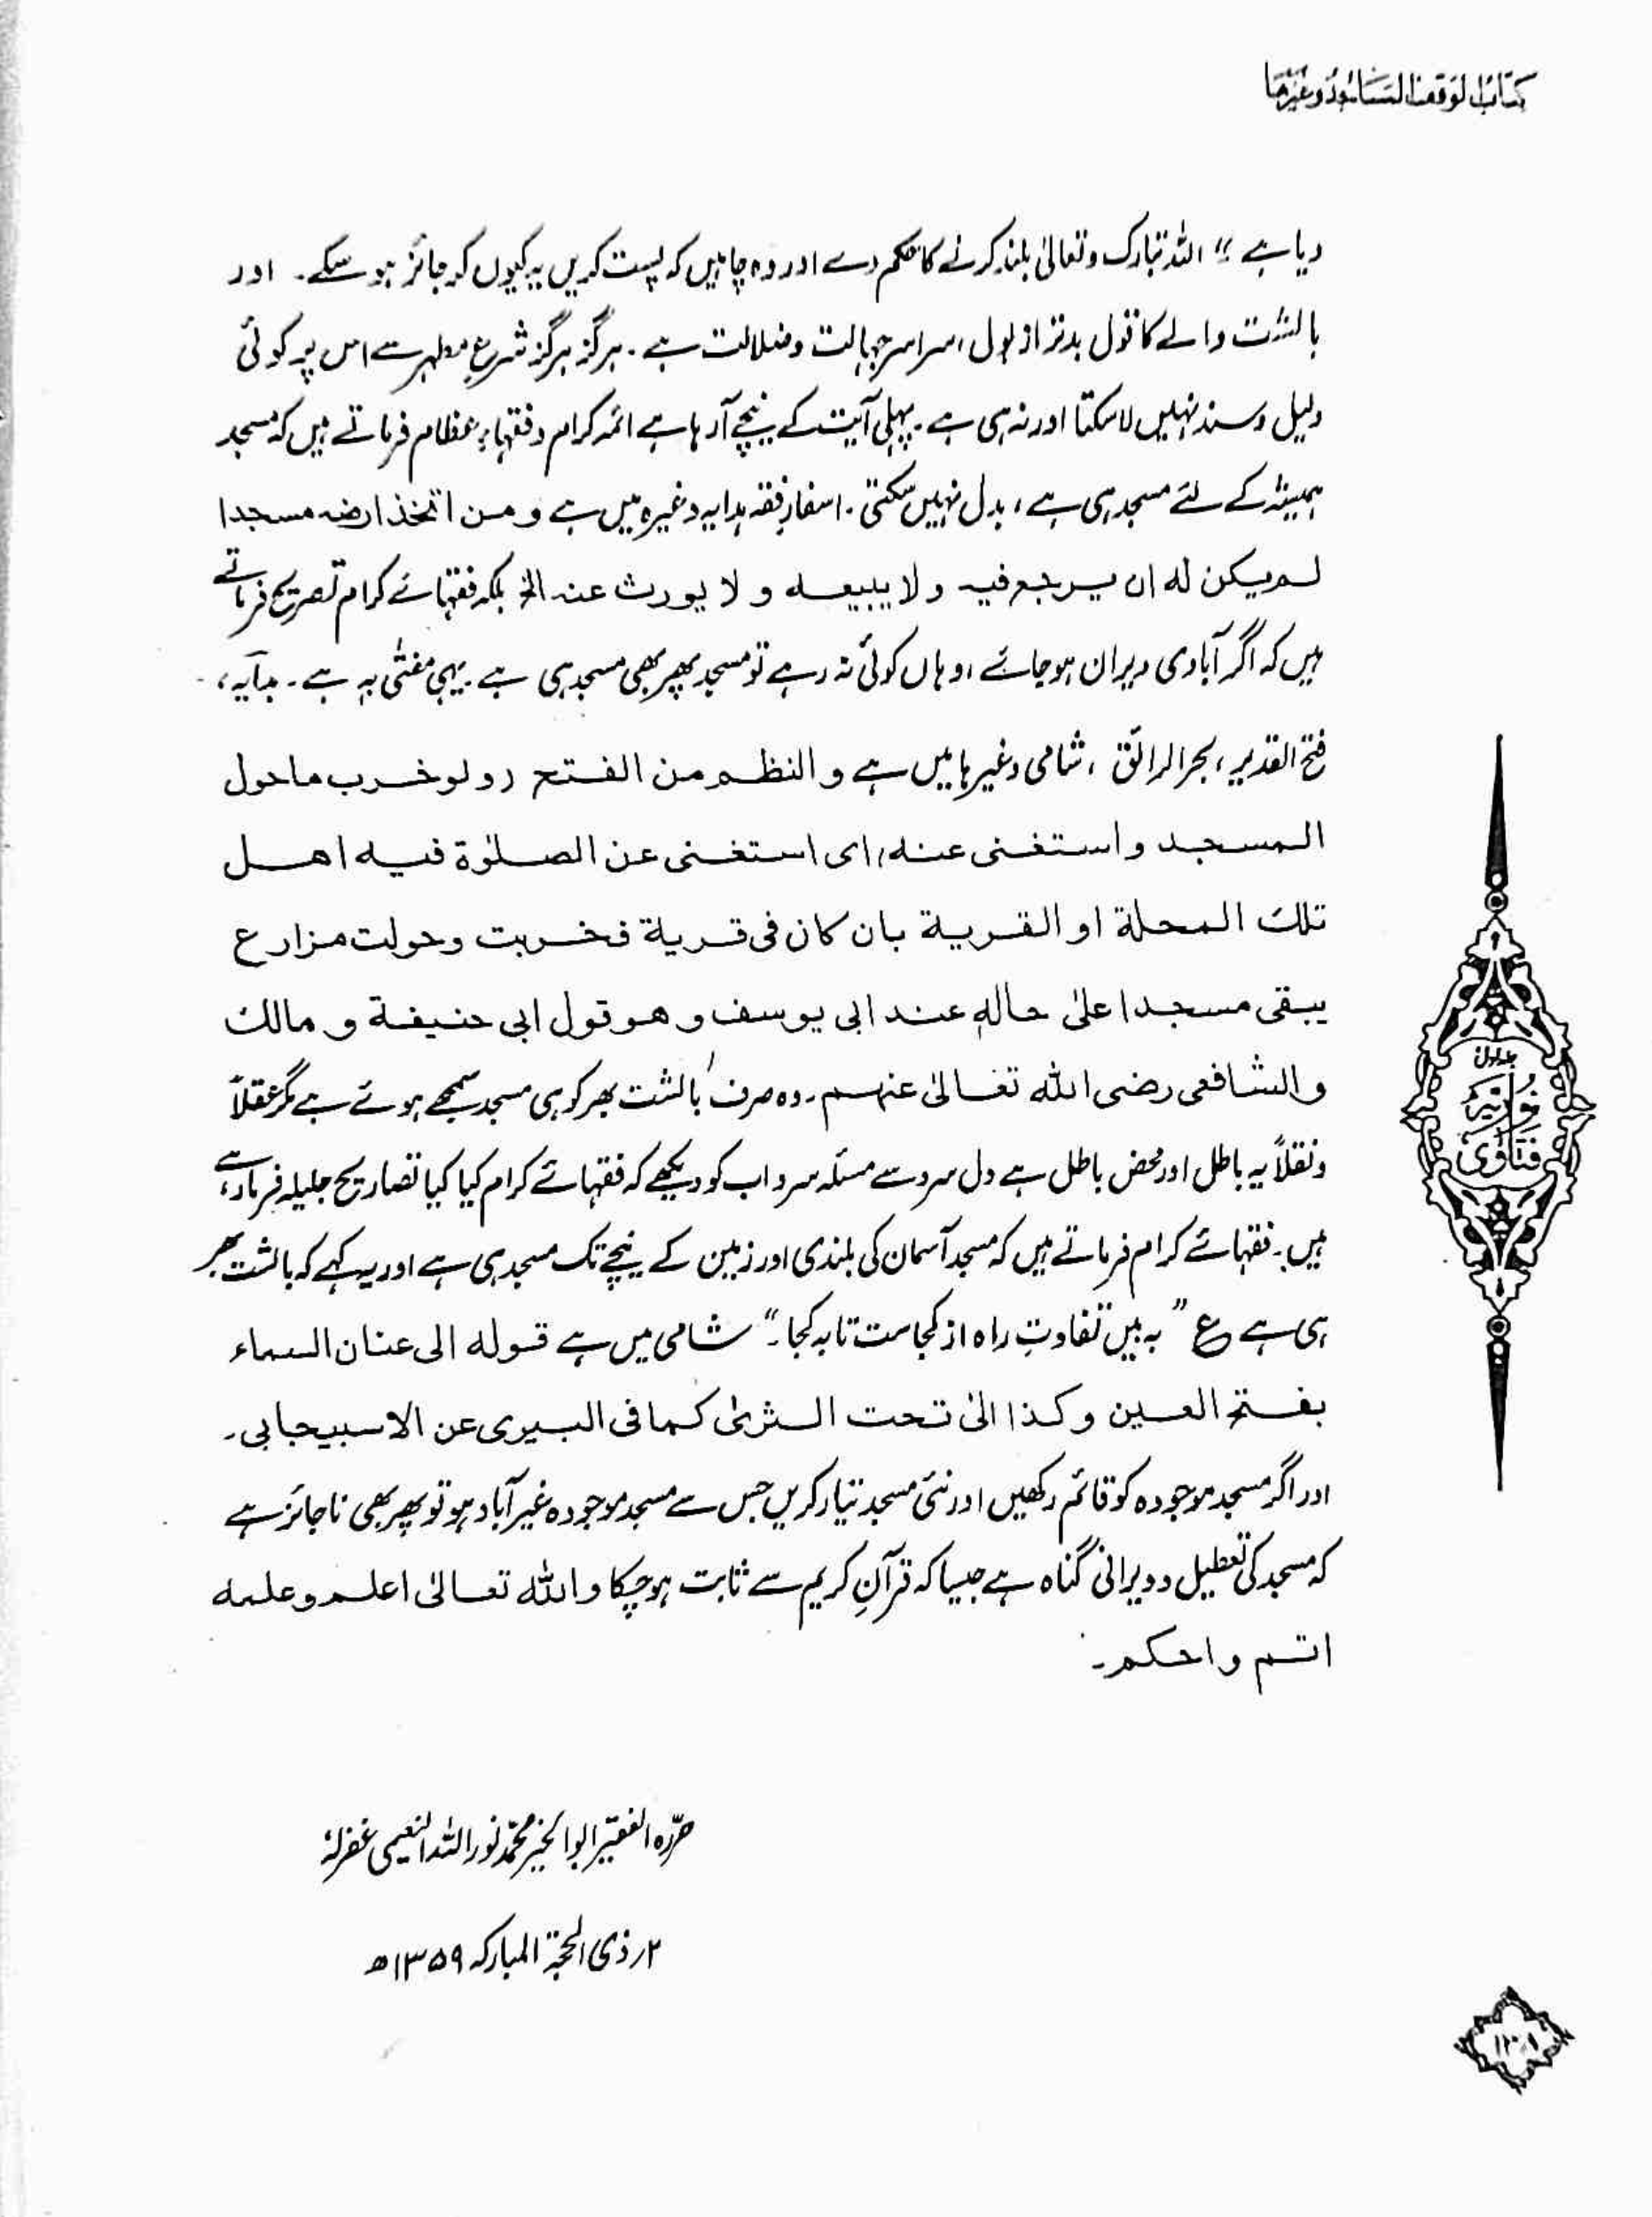 کتاب الوقف المساجد وغیرہا
دیا ہے" اللہ تبارک وتعالیٰ بلند کرنے کا حکم دے اور وہ چاہیں کہ پست کریں یہ کیوں کر جائز ہو سکے۔ اور
بالشت والے کا قول بدتر از بول، سراسر جہالت وضلالت ہے۔ ہرگز ہرگز شرعِ مطہر سے اس پر کوئی
دلیل وسند نہیں لا سکتا اور نہ ہی ہے۔ پہلی آیت کے نیچے آ رہا ہے ائمہ کرام وفقہاءِ عظام فرماتے ہیں کہ مسجد
ہمیشہ کے لئے مسجد ہی ہے، بدل نہیں سکتی۔ اسفارِ فقہ ہدایہ وغیرہ میں ہے و من اتخذ ارضہ مسجدا
لم یکن لہ ان یرجع فیہ ولا یبیعہ و لا یورث عنہ الخ بلکہ فقہائے کرام تصریح فرماتے
ہیں کہ اگر آبادی ویران ہو جائے، وہاں کوئی نہ رہے تو مسجد پھر بھی مسجد ہی ہے۔ یہی مفتیٰ بہ ہے۔ ہدایہ،
فتح القدیر، بحر الرائق، شامی وغیرہا میں ہے و النظم من الفتح (ولو خرب ما حول
المسجد و استغنی عنہ) ای استغنی عن الصلوٰة فیہ اھل
تلک المحلة او القریة بان کان فی قریة فخربت وحولت مزارع
یبقی مسجدا علیٰ حالہٖ عند ابی یوسف و ھو قول ابی حنیفة و مالک
و الشافعی رضی اللہ تعالیٰ عنہم۔ وہ صرف بالشت بھر کو ہی مسجد سمجھے ہوئے ہے مگر عقلاً
ونقلاً یہ باطل اور محض باطل ہے دل سرد سے مسئلہ سرداب کو دیکھے کہ فقہائے کرام کیا کیا تصاریح جلیلہ فرما رہے
ہیں۔ فقہائے کرام فرماتے ہیں کہ مسجد آسمان کی بلندی اور زمین کے نیچے تک مسجد ہی ہے اور یہ کہے کہ بالشت بھر
ہی ہے ع "بہ بیں تفاوتِ راہ از کجاست تا بہ کجا۔" شامی میں ہے قولہ الی عنان السماء
بفتح العین وکذا الیٰ تحت الثریٰ کما فی البیری عن الاسبیجابی۔
اور اگر مسجد موجودہ کو قائم رکھیں اور نئی مسجد تیار کریں جس سے مسجد موجودہ غیر آباد ہو تو پھر بھی ناجائز ہے
کہ مسجد کی تعطیل و ویرانی گناہ ہے جیسا کہ قرآنِ کریم سے ثابت ہو چکا واللہ تعالیٰ اعلم وعلمہ
اتم و احکم۔
جلد اول
نوریہ
فتاویٰ
حرّرہ الفقیر ابو الخیر محمّد نور اللہ النعیمی غفرلہٗ
۲؍ ذی الحجۃ المبارکہ ۱۳۵۹ھ